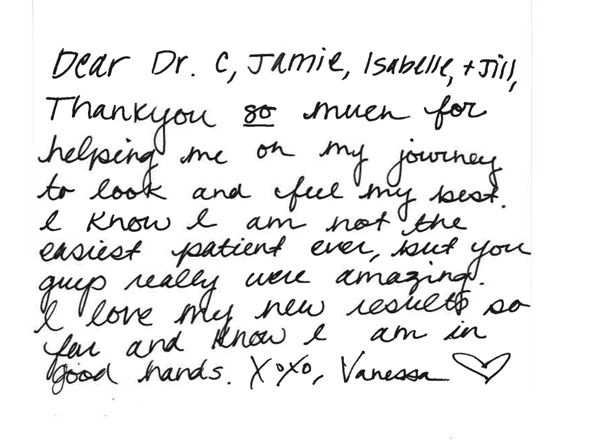 Dear Dr. C, Jamie, Isabelle, + Jill,
Thankyou so much for
helping me on my journey
to look and feel my best.
I know I am not the
easiest patient ever, but you
guys really were amazing.
I love my new results so
far and know I am in
good hands. XoXo, Vanessa ♡